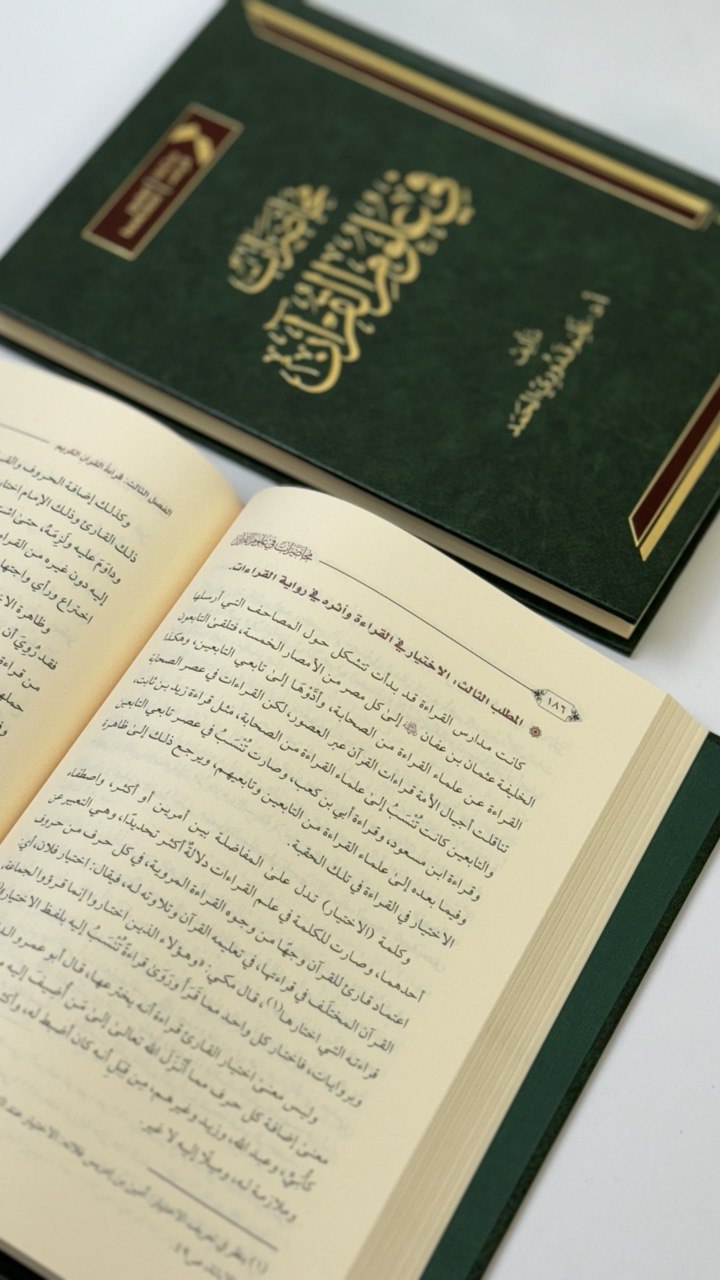 محاضرات
في علوم القرآن
تأليف
أ.د. غانم قدوري الحمد
محاضرات في علوم القرآن
١٨٦
المطلب الثالث: الاختيار في القراءة وأثره في رواية القراءات.
كانت مدارس القراءة قد بدأت تتشكل حول المصاحف التي أرسلها
الخليفة عثمان بن عفان إلى كل مصر من الأمصار الخمسة، فتلقى التابعون
القراءة عن علماء القراءة من الصحابة، وأدَّوْها إلى تابعي التابعين، وهكذا
تناقلت أجيال الأمة قراءات القرآن عبر العصور، لكن القراءات في عصر الصحابة
والتابعين كانت تُنْسَبُ إلى علماء القراءة من الصحابة، مثل قراءة زيد بن ثابت،
وقراءة ابن مسعود، وقراءة أبي بن كعب، وصارت تُنْسَبُ في عصر تابعي التابعين
وفيما بعده إلى علماء القراءة من التابعين وتابعيهم، ويرجع ذلك إلى ظاهرة
الاختيار في القراءة في تلك الحقبة.
وكلمة (الاختيار) تدل على المفاضلة بين أمرين أو أكثر، واصطفاء
أحدهما، وصارت للكلمة في علم القراءات دلالةٌ أكثر تحديدًا، وهي التعبير عن
اعتماد قارئ للقرآن وجهًا من وجوه القراءة المروية، في كل حرف من حروف
القرآن المختلَف في قراءتها، في تعليمه القرآن وتلاوته له، فيقال: اختيار فلان، أي:
قراءته التي اختارها(١)، قال مكي: «وهؤلاء الذين اختاروا إنما قرؤوا لجماعة،
وبروايات، فاختار كل واحد مما قَرَأَ ورَوَى قراءةً تُنْسَبُ إليه بلفظ الاختيار
وليس معنى اختيار القارئ قراءة أنه يخترعها، قال أبو عمرو
معنى إضافة كل حرف مما أَنْزَلَ الله تعالى إلى مَن أُضِيفَ إليه
كأُبَيٍّ، وعبد الله، وزيد وغيرهم، مِن قِبَلِ أنه كان أضبط له،
وملازمة له، وميلًا إليه لا غير.
(١) ينظر في تعريف الاختيار:
الفصل الثالث: قراءة القرآن الكريم
وكذلك إضافة الحروف
ذلك القارئ وذلك الإمام
وداوَمَ عليه ولَزِمَهُ، حتى
إليه دون غيره من
اختراع ورأي
وظاهرة
فقد رُوِيَ أن
من قراءة